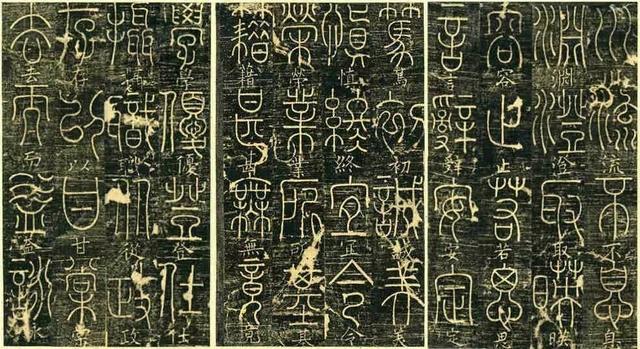 川流不息
淵澄取映
容止若思
言辭安定
篤初誠美
慎終宜令
榮業所基
籍甚無竟
學優登仕
攝職從政
存以甘棠
去而益詠